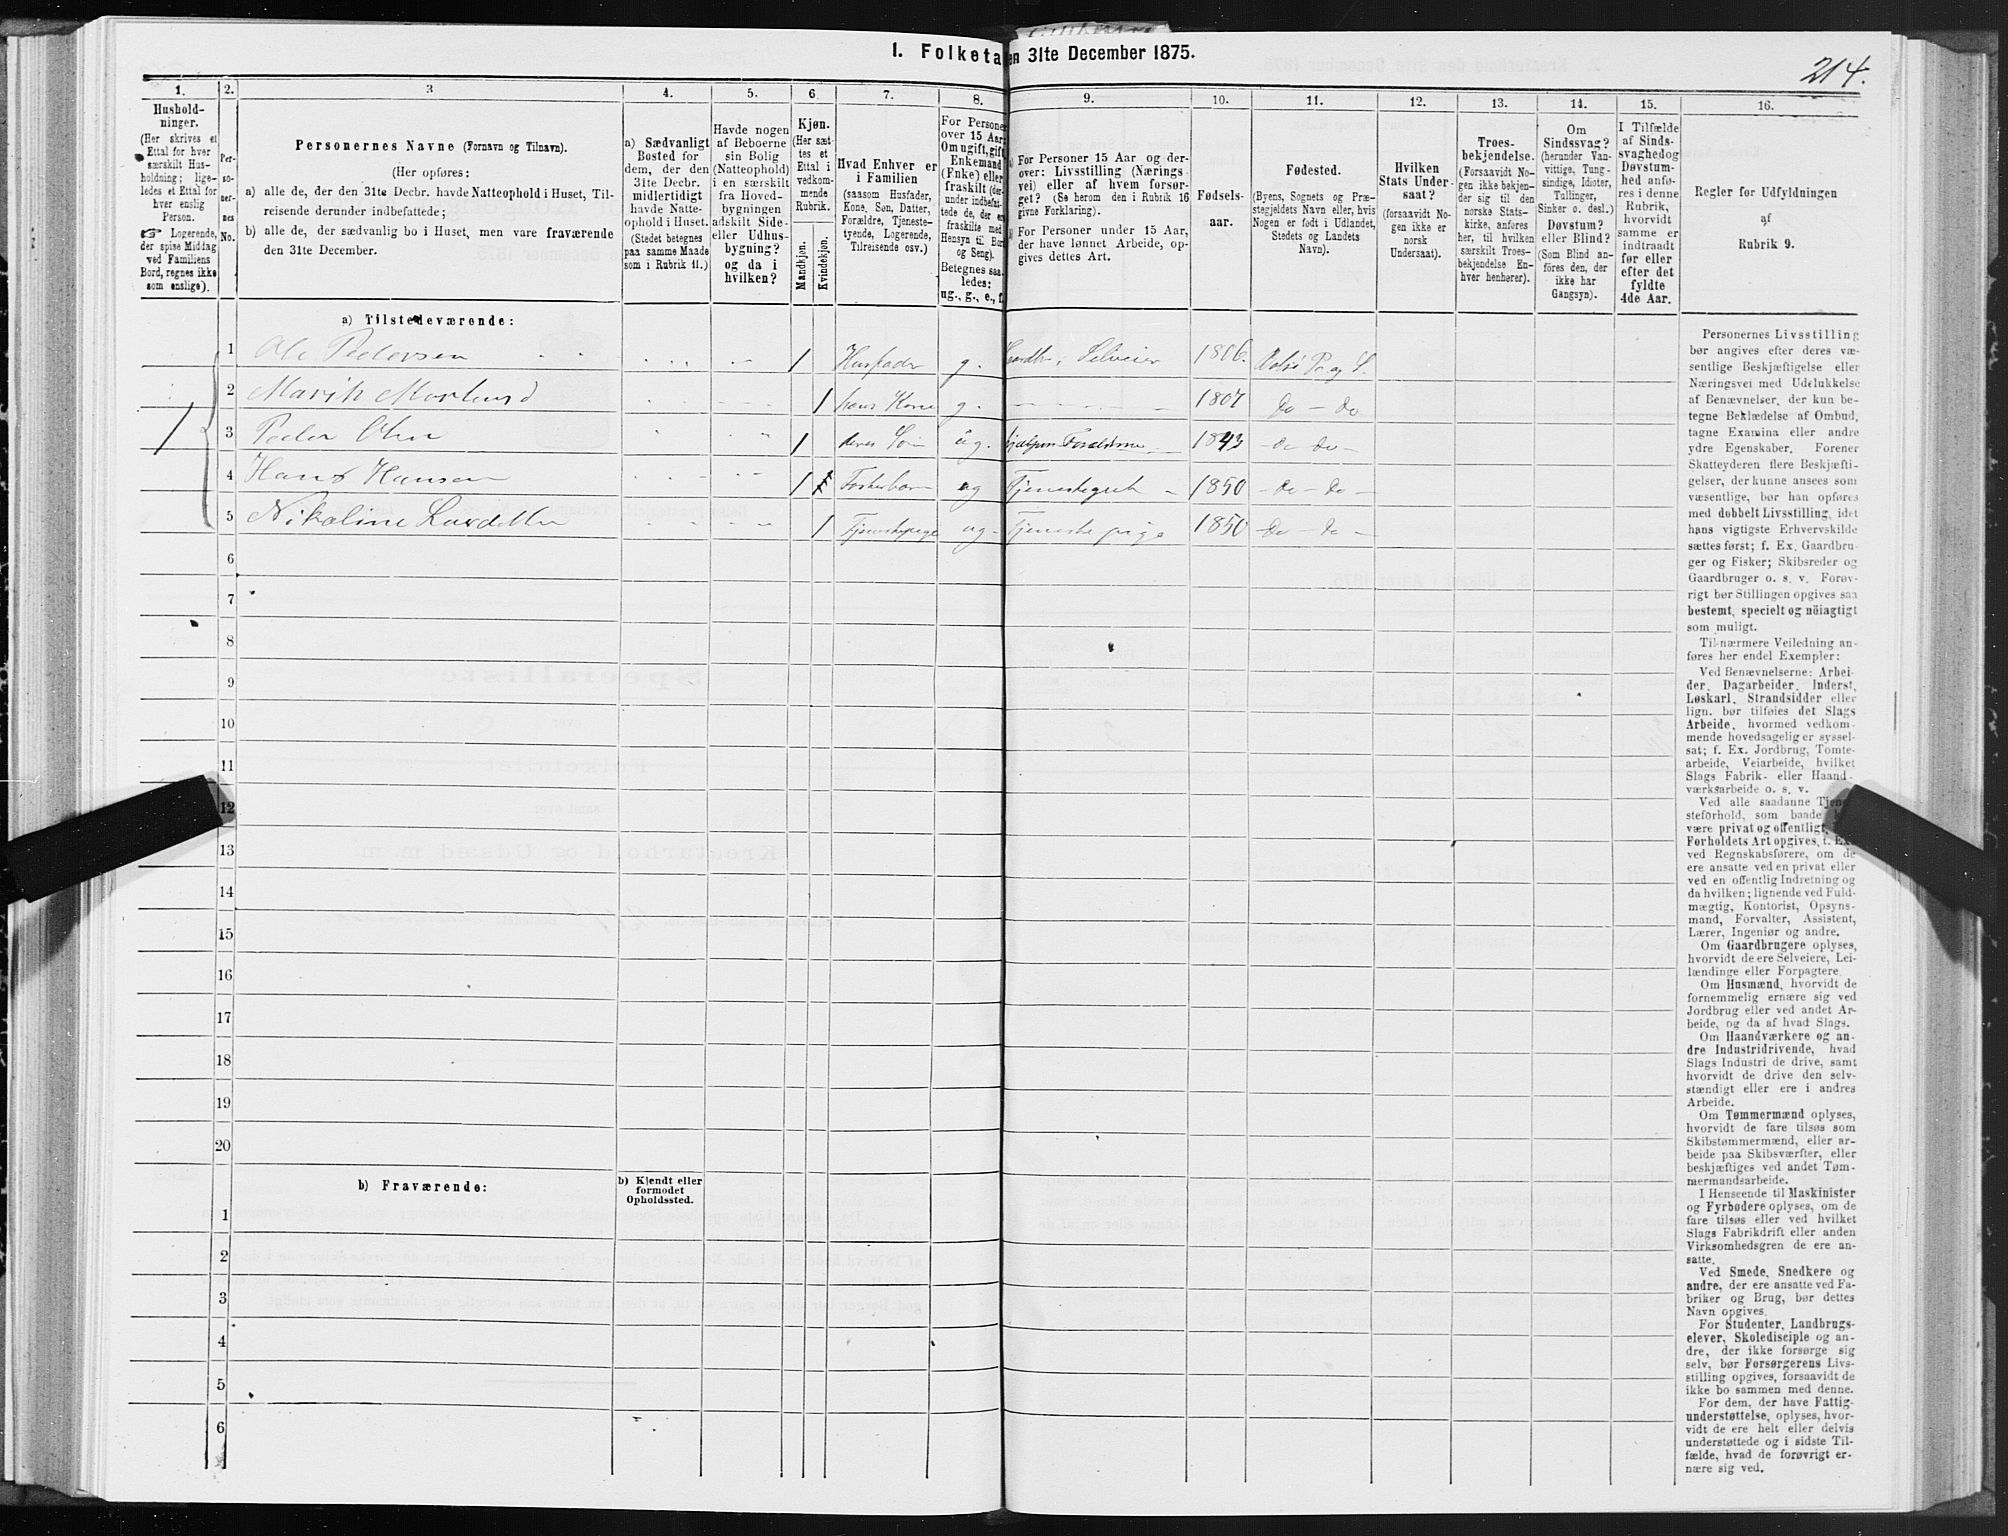 1. Folketa en 31te December 1875.
214.
1.
Hushold-
ninger.
(Her skrives et
Ettal for hver
særskilt Hus-
holdning; lige-
ledes et Ettal for
hver enslig
Person.
☞ Logerende,
der spise Middag
ved Familiens
Bord, regnes ikke
som enslige).
2.
Per-
so-
ner-
nes
No.
3
Personernes Navne (Fornavn og Tilnavn).
(Her opføres:
a) alle de, der den 31te Decbr. havde Natteophold i Huset, Til-
reisende derunder indbefattede;
b) alle de, der sædvanlig bo i Huset, men vare fraværende
den 31te December.
4.
a) Sædvanligt
Bosted for
dem, der den
31te Decbr.
midlertidigt
havde Natte-
ophold i Huset.
(Stedet betegnes
paa samme Maade
som i Rubrik 11.)
5.
Havde nogen
af Beboerne
sin Bolig
(Natteophold)
i en særskilt
fra Hoved-
bygningen
adskilt Side-
eller Udhus-
bygning?
og da i
hvilken?
6
Kjøn.
(Her sæt-
tes et
Ettal i
vedkom-
mende
Rubrik.
Mandkjøn.
Kvindekjøn.
7.
Hvad Enhver er
i Familien
(saasom Husfader,
Kone, Søn, Datter,
Forældre, Tjeneste-
tyende, Logerende,
Tilreisende osv.)
8.
For Personer
over 15 Aar:
Om ugift, gift,
Enkemand
(Enke) eller
fraskilt (der-
under indbefat-
tede de, der er
fraskilte med
Hensyn til Bord
og Seng).
Betegnes saa-
ledes:
ug., g., e., f.
9.
a) For Personer 15 Aar og der-
over: Livsstilling (Nærings-
vei) eller af hvem forsør-
get? (Se herom den i Rubrik 16
givne Forklaring).
b) For Personer under 15 Aar,
der have lønnet Arbeide, op-
gives dettes Art.
10.
Fødsels-
aar.
11.
Fødested.
(Byens, Sognets og Præ-
stegjeldets Navn eller, hvis
Nogen er født i Udlandet,
Stedets og Landets
Navn).
12.
Hvilken
Stats Under-
saat?
(forsaavidt No-
gen ikke er
norsk
Undersaat).
13.
Troes-
bekjendelse.
(Forsaavidt No-
gen ikke bekjen-
der sig til den
norske Stats-
kirke, anføres
her, til hvilken
særskilt Troes-
bekjendelse En-
hver henhører).
14.
Om
Sindssvag?
(herunder Van-
vittige, Tung-
sindige, Idioter,
Tullinger,
Sinker o. desl.)
Døvstum?
eller Blind?
(Som Blind an-
føres den, der
ikke har
Gangsyn).
15.
I Tilfælde
af Sinds-
svaghed og
Døvstum-
hed anfø-
res i denne
Rubrik,
hvorvidt
samme er
indtraadt
før eller
efter det
fyldte
4de Aar.
16.
Regler for Udfyldningen
af
Rubrik 9.
a) Tilstedeværende:
1 Ole Pedersen 1 Husfader g. Gardbr. Selveier 1806.
2 Marith 1 hans Kone g. 1807 do - do
1
3 Peder Olsen 1 deres Søn ug. hjælper Forældrene 1843 - do do -
4 Hans Hansen 1 Fosterbarn ug Tjenestegut - 1850 - do - do -
5 Nikoline 1 Tjenestepige ug - Tjenestepige 1850 do - do -
6
7
8
9
10
11
12
13
14
15
16
17
18
19
20
b) Fraværende:
b) Kjendt eller
formodet
Opholdssted.
1
2
3
4
5
6
Personernes Livsstilling
bør angives efter deres væ-
sentlige Beskjæftigelse eller
Næringsvei med Udelukkelse
af Benævnelser, der kun be-
tegne Beklædelse af Ombud,
tagne Examina eller andre
ydre Egenskaber. Forener
Skatteyderen flere Beskjæfti-
gelser, der kunne ansees som
væsentlige, bør han opføres
med dobbelt Livsstilling, idet
hans vigtigste Erhvervskilde
sættes først; f. Ex. Gaardbru-
ger og Fisker; Skibsreder og
Gaardbruger o. s. v. Forøv-
rigt bør Stillingen opgives saa
bestemt, specielt og nöiagtigt
som muligt.
Til nærmere Veiledning an-
føres her endel Exempler:
Ved Benævnelserne: Arbei-
der, Dagarbeider, Inderst,
Løskarl, Strandsidder eller
lign. bør tilføies det Slags
Arbeide, hvormed vedkom-
mende hovedsagelig er syssel-
sat; f. Ex. Jordbrug, Tomte-
arbeide, Veiarbeide, hvilket
Slags Fabrik- eller Haand-
værksarbeide o. s. v.
Ved alle saadanne Tjene-
steforhold, som baade
være privat og offentligt,
Forholdets Art opgives, f. Ex.
ved Regnskabsførere, om de
ere ansatte ved en privat eller
ved en offentlig Indretning og
da hvilken; lignende ved Fuld-
mægtig, Kontorist, Opsyns-
mand, Forvalter, Assistent,
Lærer, Ingeniør og andre.
Om Gaardbrugere oplyses,
hvorvidt de ere Selveiere, Lei-
lændinge eller Forpagtere.
Om Husmænd, hvorvidt de
fornemmelig ernære sig ved
Jordbrug eller ved andet Ar-
beide, og da af hvad Slags.
Om Haandværkere og an-
dre Industridrivende, hvad
Slags Industri de drive, samt
hvorvidt de drive den selv-
stændigt eller ere i andres
Arbeide.
Om Tømmermænd oplyses,
hvorvidt de fare tilsøs som
Skibstømmermænd, eller ar-
beide paa Skibsværfter, eller
beskjæftiges ved andet Tøm-
mermandsarbeide.
I Henseende til Maskinister
og Fyrbødere oplyses, om de
fare tilsøs eller ved hvilket
Slags Fabrikdrift eller anden
Virksomhedsgren de ere an-
satte.
Ved Smede, Snedkere og
andre, der ere ansatte ved Fa-
briker og Brug, bør dettes
Navn opgives.
For Studenter, Landbrugs-
elever, Skoledisciple og an-
dre, der ikke forsørge sig
selv, bør Forsørgerens Livs-
stilling opgives, forsaavidt de
ikke bo sammen med denne.
For dem, der have Fattig-
understøttelse, oplyses, hvor-
vidt de ere helt eller delvis
understøttede og i sidste Til-
fælde, hvad de forøvrigt er-
nære sig ved.